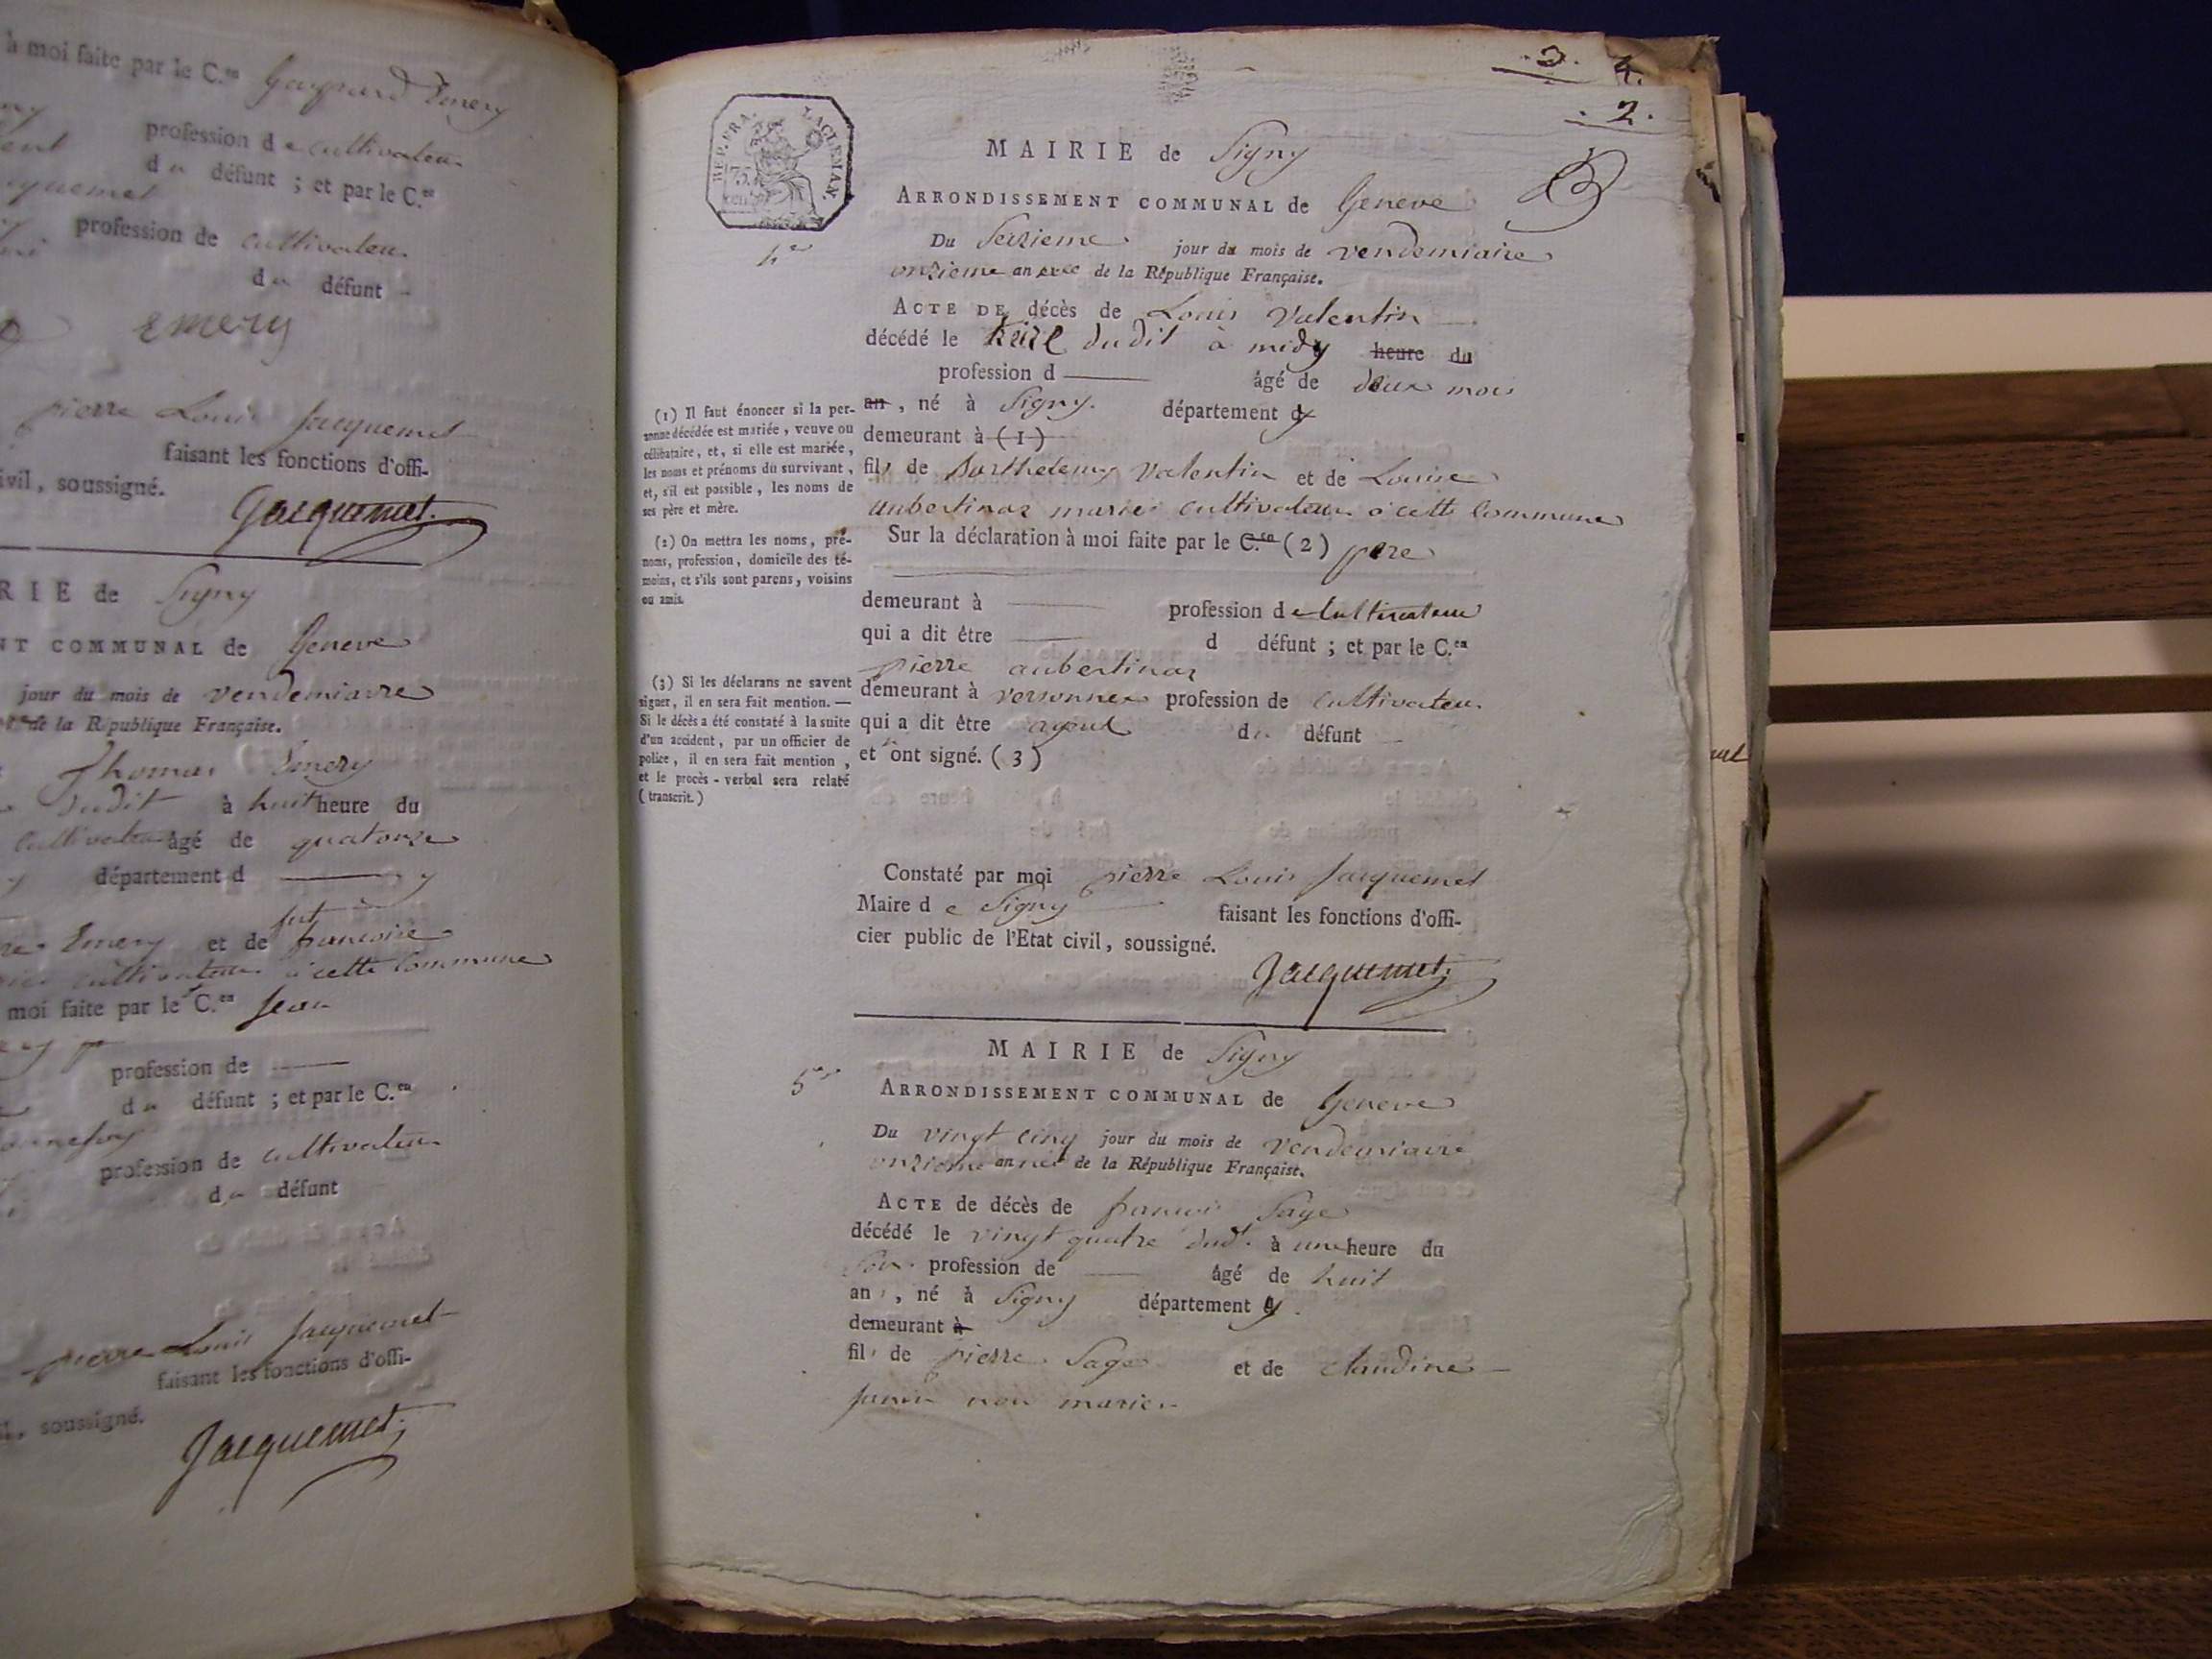 à moi faite par le C.en Gaspard Emery
profession de cultivateur
du défunt ; et par le C.en
profession de cultivateur
du défunt
Emery
pierre Louis Jacquemet
faisant les fonctions d'offi-
ivil, soussigné.
Jacquemet.
RIE de Signy
NT COMMUNAL de Geneve
jour du mois de vendemiaire
de la République Française.
Thomas Emery
dudit à huit heure du
cultivateur âgé de quatorze
département d y
fut
Emery et de francoise
cultivateur a cette Commune
moi faite par le C.en Jean
profession de
du défunt ; et par le C.en
profession de cultivateur
du défunt
pierre Louis Jacquemet
faisant les fonctions d'offi-
soussigné.
Jacquemet.
.3. 4.
.2.
REP. FRA. 75. cent
LAC LEMAN.
MAIRIE de Signy
ARRONDISSEMENT COMMUNAL de Geneve
4e
Du Seizieme jour du mois de vendemiaire
onzieme an de la République Française.
ACTE DE décès de Louis Valentin
décédé le dudit à midy heure du
profession d âgé de deux mois
an, né à Signy. département y
demeurant à (1)
fils de Barthelemy Valentin et de Louise
aubertinaz maries cultivateur a cette Commune
Sur la déclaration à moi faite par le C.en (2) pere
demeurant à profession de Cultivateur
qui a dit être d défunt ; et par le C.en
pierre aubertinaz
demeurant à versonnex profession de Cultivateur
qui a dit être ayeul du défunt
et ont signé. (3)
(1) Il faut énoncer si la per-
sonne décédée est mariée, veuve ou
célibataire, et, si elle est mariée,
les noms et prénoms du survivant,
et, s'il est possible, les noms de
ses père et mère.
(2) On mettra les noms, pré-
noms, profession, domicile des té-
moins, et s'ils sont parens, voisins
ou amis.
(3) Si les déclarans ne savent
signer, il en sera fait mention. —
Si le décès a été constaté à la suite
d'un accident, par un officier de
police, il en sera fait mention,
et le procès-verbal sera relaté
(transcrit.)
Constaté par moi pierre Louis Jacquemet
Maire de Signy faisant les fonctions d'offi-
cier public de l'Etat civil, soussigné.
Jacquemet.
MAIRIE de Signy
5e
ARRONDISSEMENT COMMUNAL de Geneve
Du vingt cinq jour du mois de vendemiaire
onzieme année de la République Française.
ACTE de décès de francois Sage
décédé le vingt quatre dud. à une heure du
Soir profession de âgé de huit
ans, né à Signy département y.
demeurant à
fils de pierre Sage et de Claudine
Janin non maries